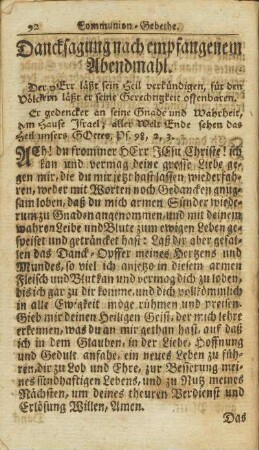 92 Communion-Gebethe.
Dancksagung nach empfangenem
Abendmahl.
Der HErr läßt sein Heil verkündigen, für den
Völckern läßt er seine Gerechtigkeit offenbaren.
Er gedencket an seine Gnade und Wahrheit,
dem Hause Israel, aller Welt Ende sehen das
Heil unsers GOttes, Ps. 98, 2, 3.
ACh! du frommer HErr JEsu Christe! ich
kan und vermag deine grosse Liebe ge-
gen mir, die du mir jetzt hast lassen wiederfah-
ren, weder mit Worten noch Gedancken gnug-
sam loben, daß du mich armen Sünder wiede-
rum zu Gnaden angenommen, und mit deinem
wahren Leibe und Blute zum ewigen Leben ge-
speiset und geträncket hast: Laß dir aber gefal-
len das Danck-Opffer meines Hertzens und
Mundes, so viel ich anjetzo in diesem armen
Fleisch und Blut kan und vermag dich zu loben,
bis ich gar zu dir komme, und dich vollkömmlich
in alle Ewigkeit möge rühmen und preisen.
Gieb mir deinen Heiligen Geist, der mich lehre
erkennen, was du an mir gethan hast, auf daß
ich in dem Glauben, in der Liebe, Hoffnung
und Gedult anfahe, ein neues Leben zu füh-
ren, dir zu Lob und Ehre, zur Besserung mei-
nes sündhafftigen Lebens, und zu Nutz meines
Nächsten, um deines theuren Verdienst und
Erlösung Willen, Amen.
Das